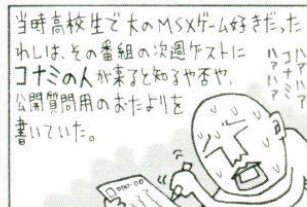 当時高校生で大のMSXゲーム好きだった
わしは、その番組の次週ゲストに
コナミの人が来ると知るや否や、
公開質問用のおたよりを
書いていた。
コナミ
ハァハァ
ハァハァ